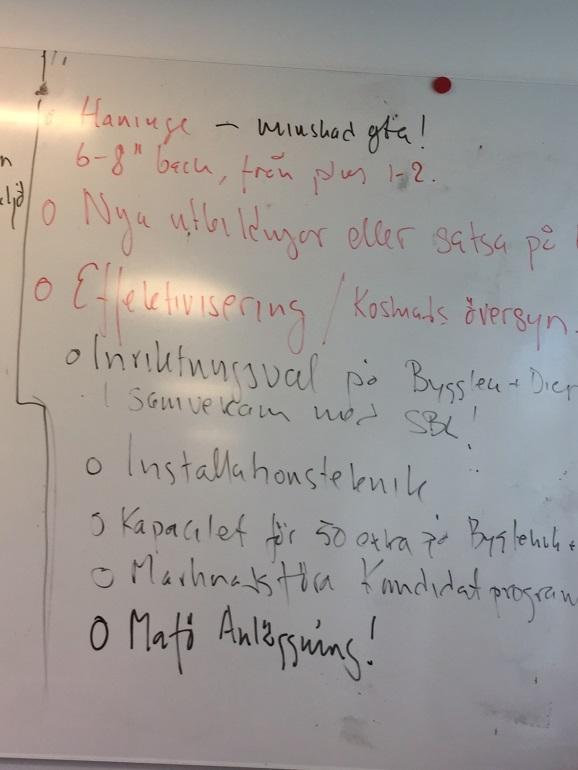 Haninge – minskad gta!
6-8" bach, från plus 1-2.
o Nya utbildngar eller satsa på
o Effektivisering / Kostnads översyn.
o Inriktnungsval på Byggtekn +
I samverkan med SBL!
o Installationsteknik
o Kapacitet för 50 extra på Bygteknik +
o Marknadsföra Kandidatprogram
o Mafö Anläggning!